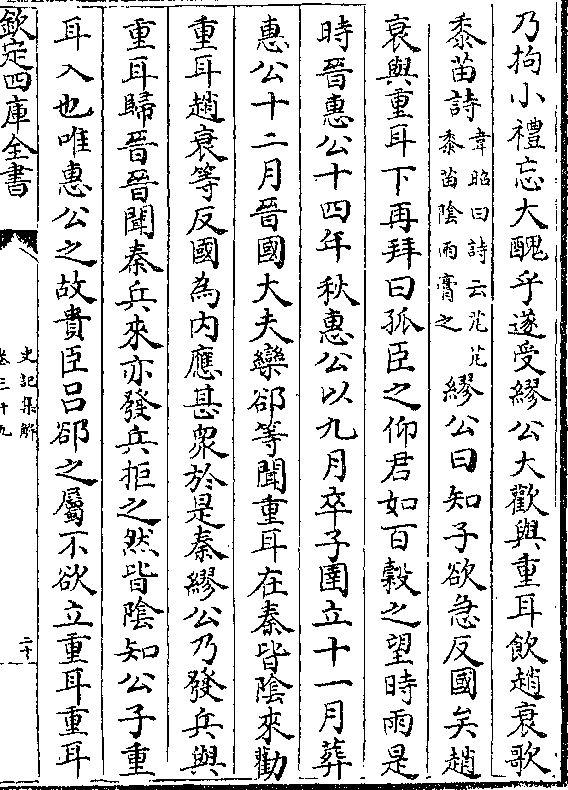 乃拘小禮忘大醜乎遂受繆公大歡與重耳飲趙衰歌
黍苗詩韋昭曰詩云芃芃黍苗陰雨膏之繆公曰知子欲急反國矣趙
衰與重耳下再拜曰孤臣之仰君如百穀之望時雨是
時晉惠公十四年秋惠公以九月卒子圉立十一月葬
惠公十二月晉國大夫欒郤等聞重耳在秦皆陰來勸
重耳趙衰等反國為内應甚衆於是秦繆公乃發兵與
重耳歸晉晉聞秦兵來亦發兵拒之然皆陰知公子重
耳入也唯惠公之故貴臣吕郤之屬不欲立重耳重耳
欽定四庫全書
史記集解
卷三十九
二十